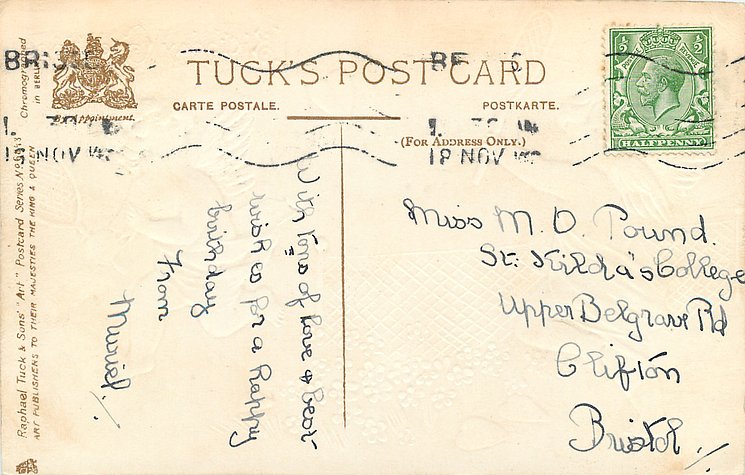 TUCK'S POST CARD
CARTE POSTALE.
POSTKARTE.
(FOR ADDRESS ONLY.)
By Appointment.
Chromographed
in BERLIN
Raphael Tuck & Sons' "Art" Postcard Series No
ART PUBLISHERS TO THEIR MAJESTIES THE KING & QUEEN
BRIS
18 NOV
18 NOV
1/2
1/2
HALFPENNY
With tons of love & best
wishes for a Happy
birthday
From
Muriel.
Miss M. O. Pound.
St. Kilda's College
Upper Belgrave Rd
Clifton
Bristol